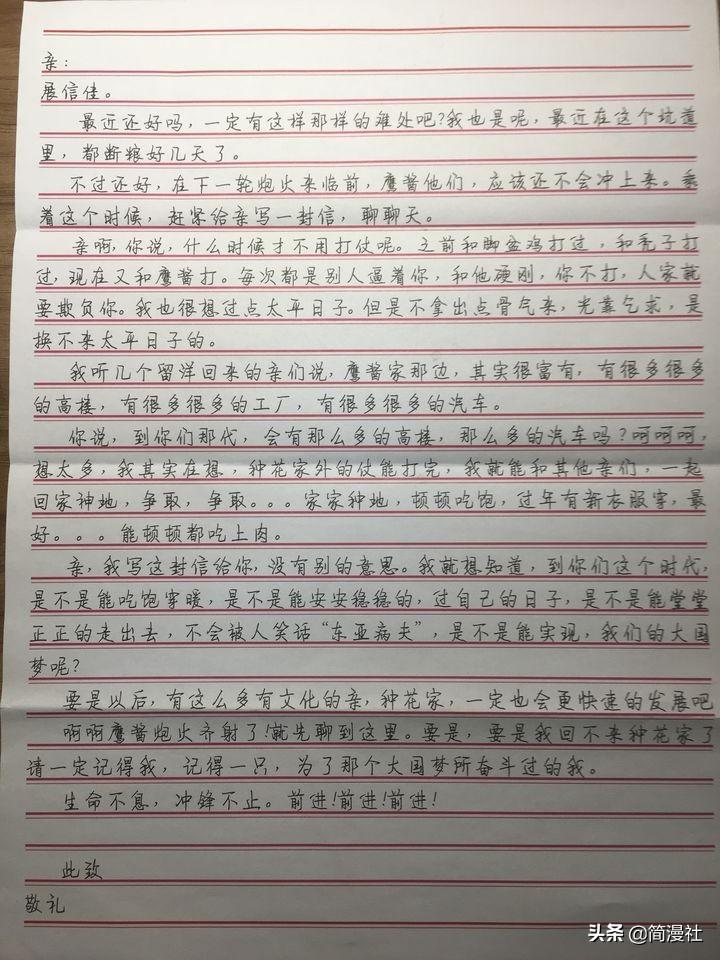 亲：
展信佳。
最近还好吗，一定有这样那样的难处吧？我也是呢，最近在这个坑道
里，都断粮好几天了。
不过还好，在下一轮炮火来临前，鹰酱他们，应该还不会冲上来。乘
着这个时候，赶紧给亲写一封信，聊聊天。
亲啊，你说，什么时候才不用打仗呢。之前和脚盆鸡打过，和秃子打
过，现在又和鹰酱打。每次都是别人逼着你，和他硬刚，你不打，人家就
要欺负你。我也很想过点太平日子。但是不拿出点骨气来，光靠乞求，是
换不来太平日子的。
我听几个留洋回来的亲们说，鹰酱家那边，其实很富有，有很多很多
的高楼，有很多很多的工厂，有很多很多的汽车。
你说，到你们那代，会有那么多的高楼，那么多的汽车吗？呵呵呵，
想太多，我其实在想，种花家外的仗能打完，我就能和其他亲们，一起
回家神地，争取，争取。。。家家种地，顿顿吃饱，过年有新衣服穿，最
好。。。能顿顿都吃上肉。
亲，我写这封信给你，没有别的意思。我就想知道，到你们这个时代，
是不是能吃饱穿暖，是不是能安安稳稳的，过自己的日子，是不是能堂堂
正正的走出去，不会被人笑话“东亚病夫”，是不是能实现，我们的大国
梦呢？
要是以后，有这么多有文化的亲，种花家，一定也会更快速的发展吧
啊啊鹰酱炮火齐射了！就先聊到这里。要是，要是我回不来种花家了
请一定记得我，记得一只，为了那个大国梦所奋斗过的我。
生命不息，冲锋不止。前进！前进！前进！
此致
敬礼
头条 @简漫社